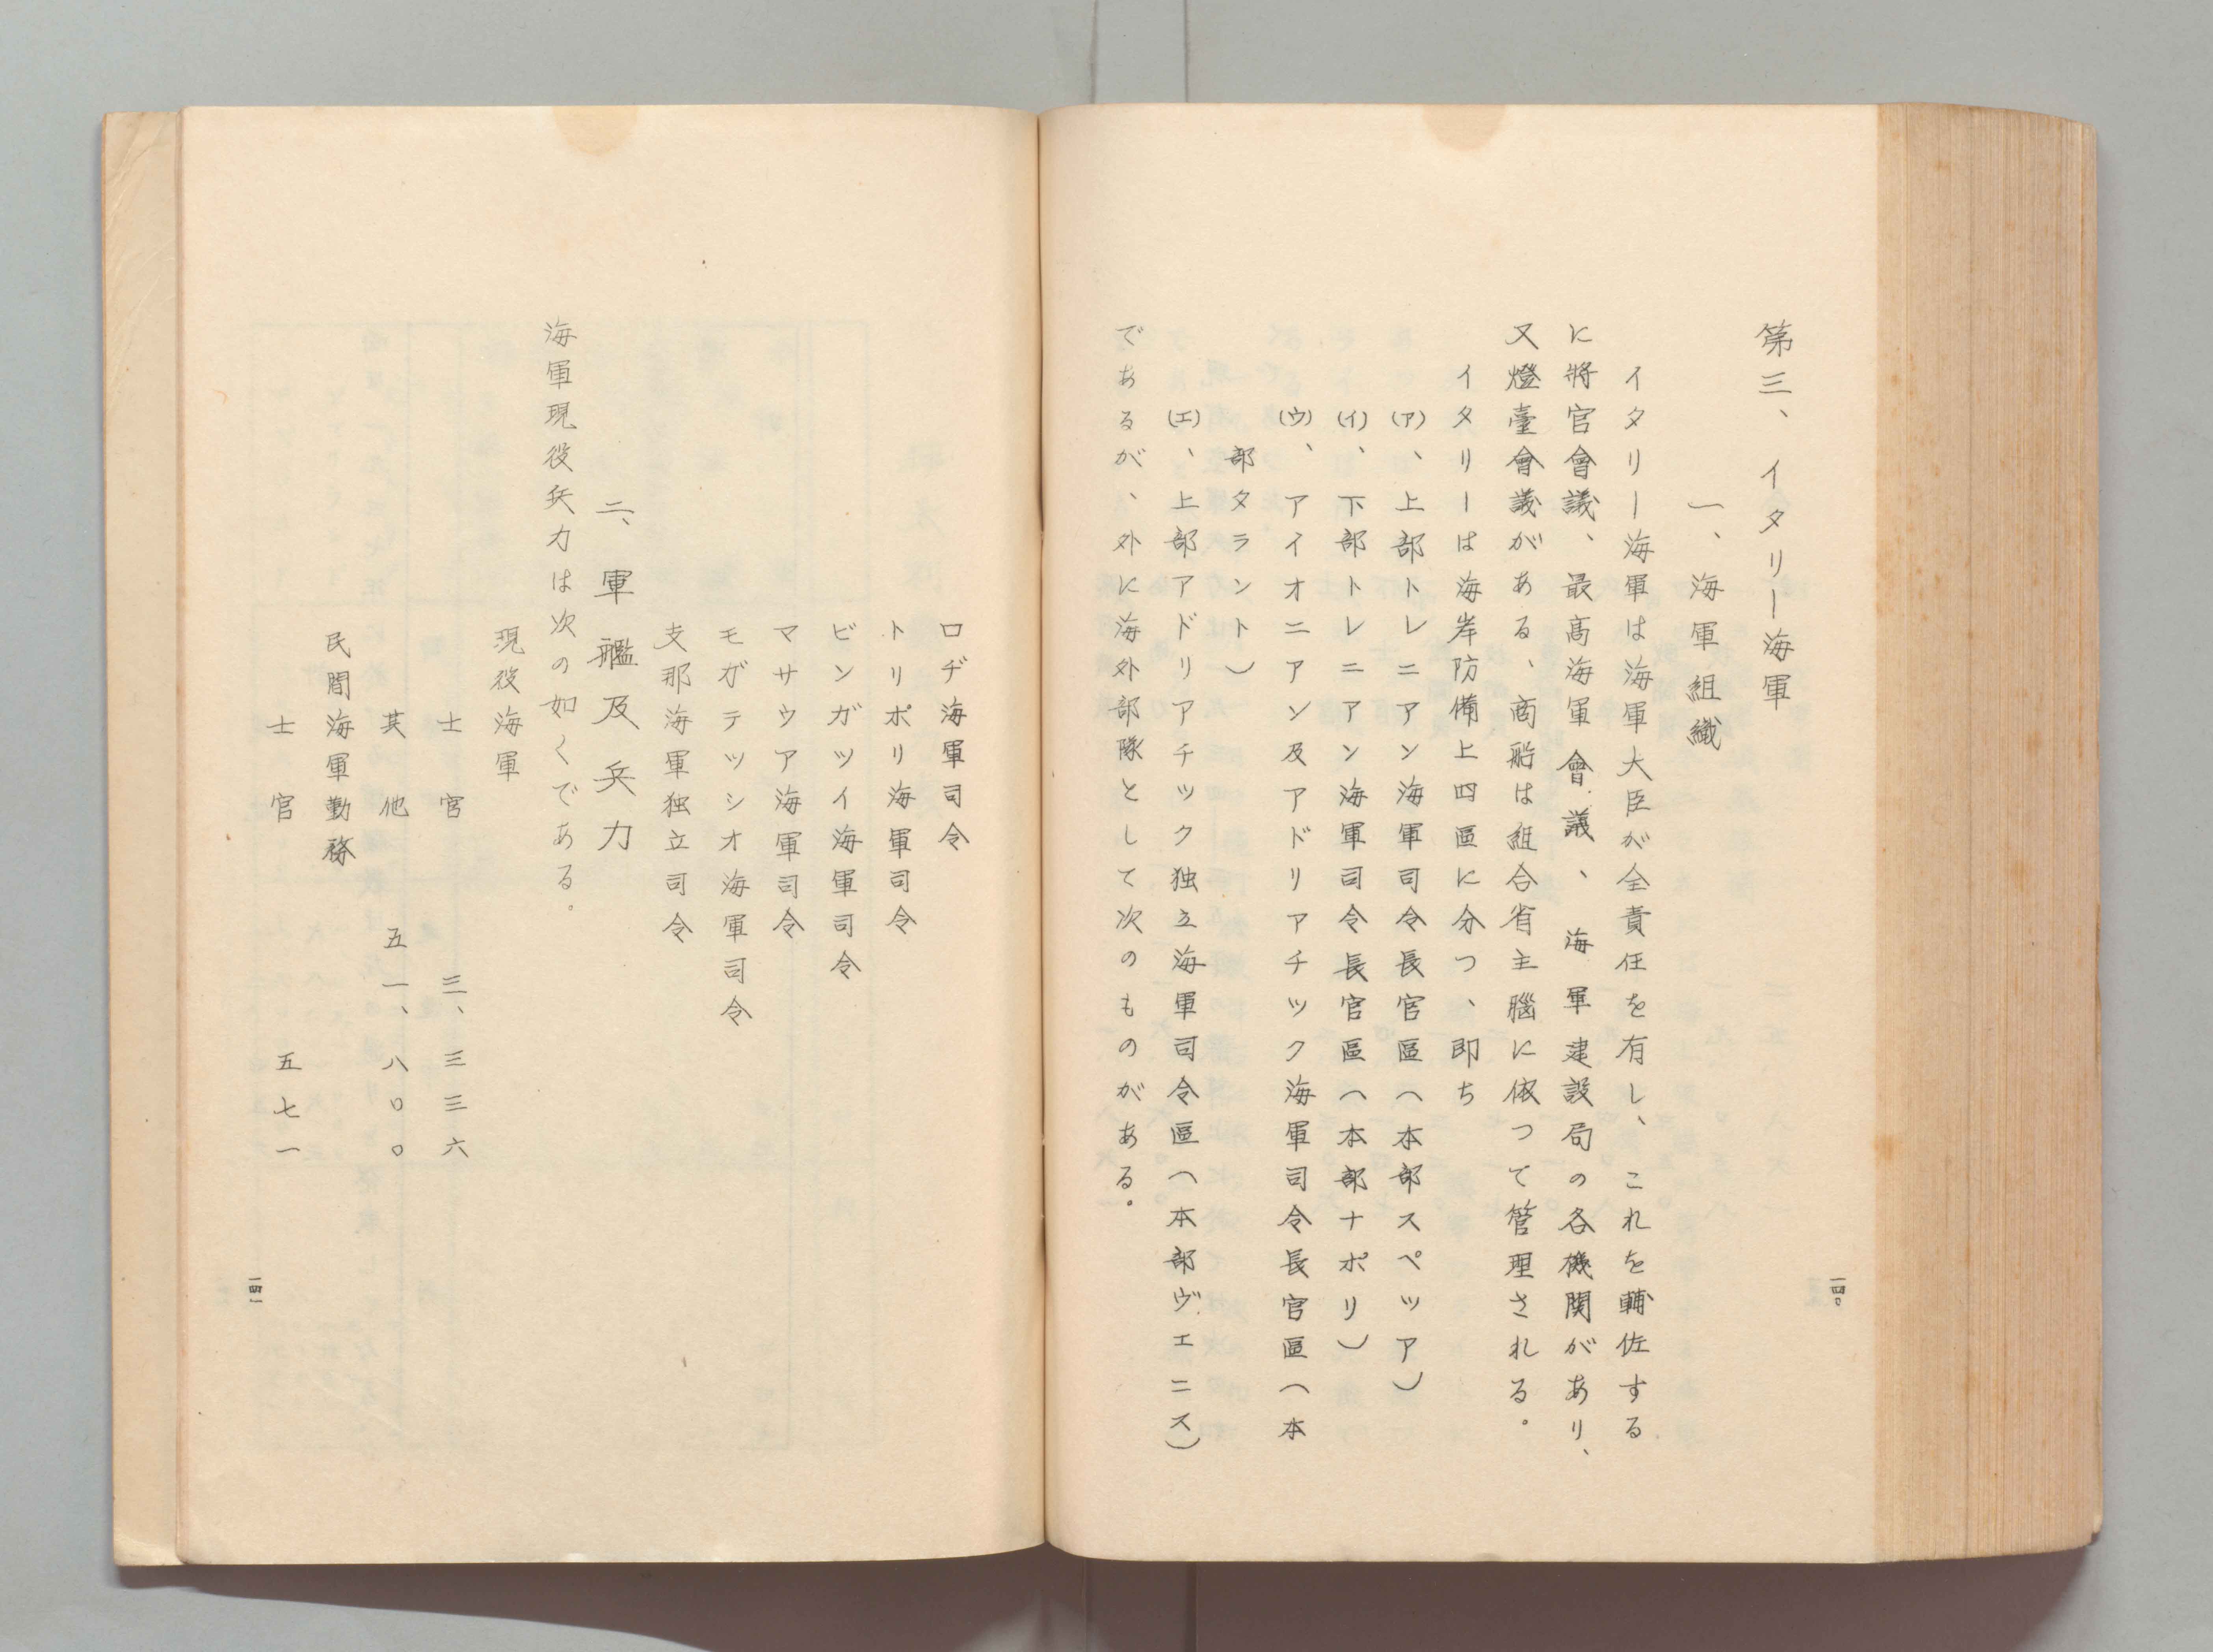 第三、イタリー海軍
一、海軍組織
イタリー海軍は海軍大臣が全責任を有し、これを輔佐する
に將官會議、最高海軍會議、海軍建設局の各機関があり、
又燈臺會議がある、商船は組合省主腦に依つて管理される。
イタリーは海岸防備上四區に分つ、即ち
(ア)、上部トレニアン海軍司令長官區(本部スペッア)
(イ)、下部トレニアン海軍司令長官區(本部ナポリ)
(ウ)、アイオニアン及アドリアチック海軍司令長官區(本
部タラント)
(エ)、上部アドリアチック独立海軍司令區(本部ヴェニス)
であるが、外に海外部隊として次のものがある。
一四〇
ロヂ海軍司令
トリポリ海軍司令
ビンガツイ海軍司令
マサウア海軍司令
モガテツシオ海軍司令
支那海軍独立司令
二、軍艦及兵力
海軍現役兵力は次の如くである。
現役海軍
士官 三、三三六
其他 五一、八〇〇
民間海軍勤務
士官 五七一
一四一